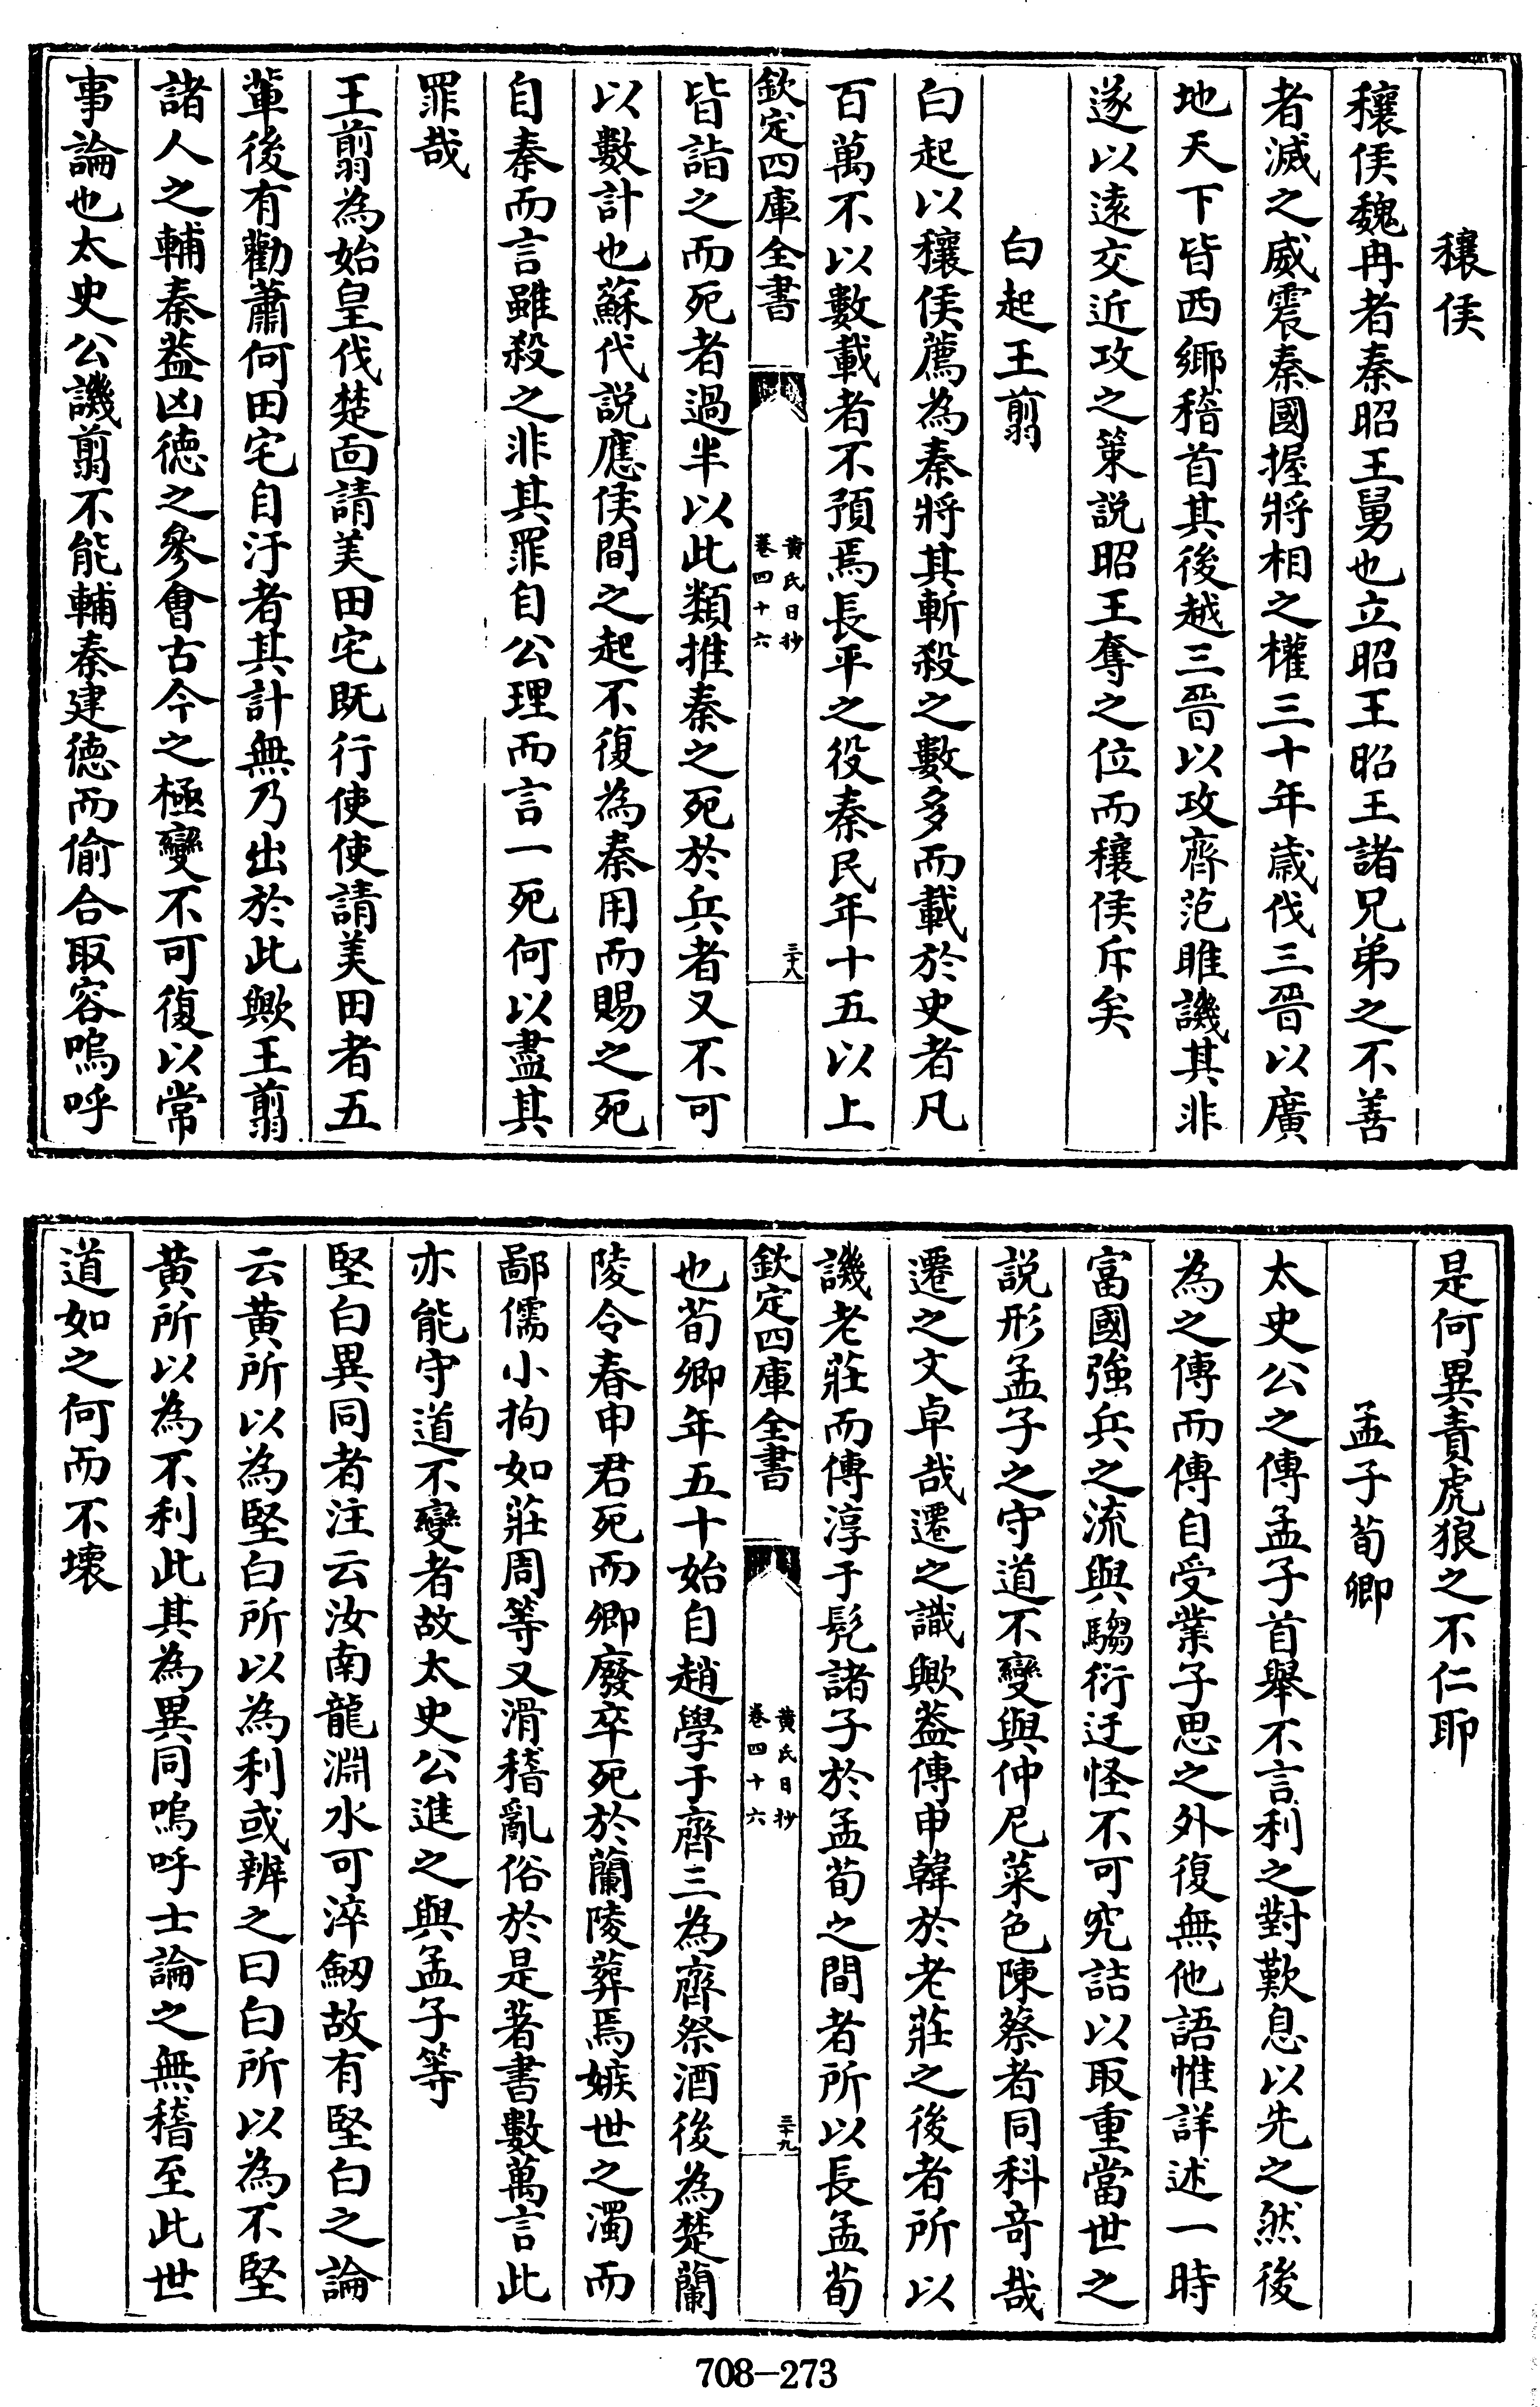 穰侯
穰侯魏冉者秦昭王舅也立昭王昭王諸兄弟之不善
者滅之威震秦國握將相之權三十年歳伐三晉以廣
地天下皆西鄉稽首其後越三晉以攻齊范雎譏其非
遂以逺交近攻之策説昭王奪之位而穰侯斥矣
白起王翦
白起以穰侯薦為秦將其斬殺之數多而載於史者凡
百萬不以數載者不預焉長平之役秦民年十五以上
欽定四庫全書
黄氏日抄
卷四十六
三十八
皆詣之而死者過半以此類推秦之死於兵者又不可
以數計也蘇代説應侯間之起不復為秦用而賜之死
自秦而言雖殺之非其罪自公理而言一死何以盡其
罪哉
王翦為始皇伐楚面請美田宅既行使使請美田者五
輩後有勸蕭何田宅自汙者其計無乃出於此歟王翦
諸人之輔秦葢凶徳之參會古今之極變不可復以常
事論也太史公譏翦不能輔秦建徳而偷合取容嗚呼
是何異責虎狼之不仁耶
孟子荀卿
太史公之傳孟子首舉不言利之對歎息以先之然後
為之傳而傳自受業子思之外復無他語惟詳述一時
富國強兵之流與騶衍迂怪不可究詰以取重當世之
説形孟子之守道不變與仲尼菜色陳蔡者同科竒哉
遷之文卓哉遷之識歟葢傳申韓於老莊之後者所以
譏老莊而傳淳于髠諸子於孟荀之間者所以長孟荀
欽定四庫全書
黄氏日抄
卷四十六
三十九
也荀卿年五十始自趙學于齊三為齊祭酒後為楚蘭
陵令春申君死而卿廢卒死於蘭陵葬焉嫉世之濁而
鄙儒小拘如莊周等又滑稽亂俗於是著書數萬言此
亦能守道不變者故太史公進之與孟子等
堅白異同者注云汝南龍淵水可淬劒故有堅白之論
云黄所以為堅白所以為利或辨之曰白所以為不堅
黄所以為不利此其為異同嗚呼士論之無稽至此世
道如之何而不壊
708-273